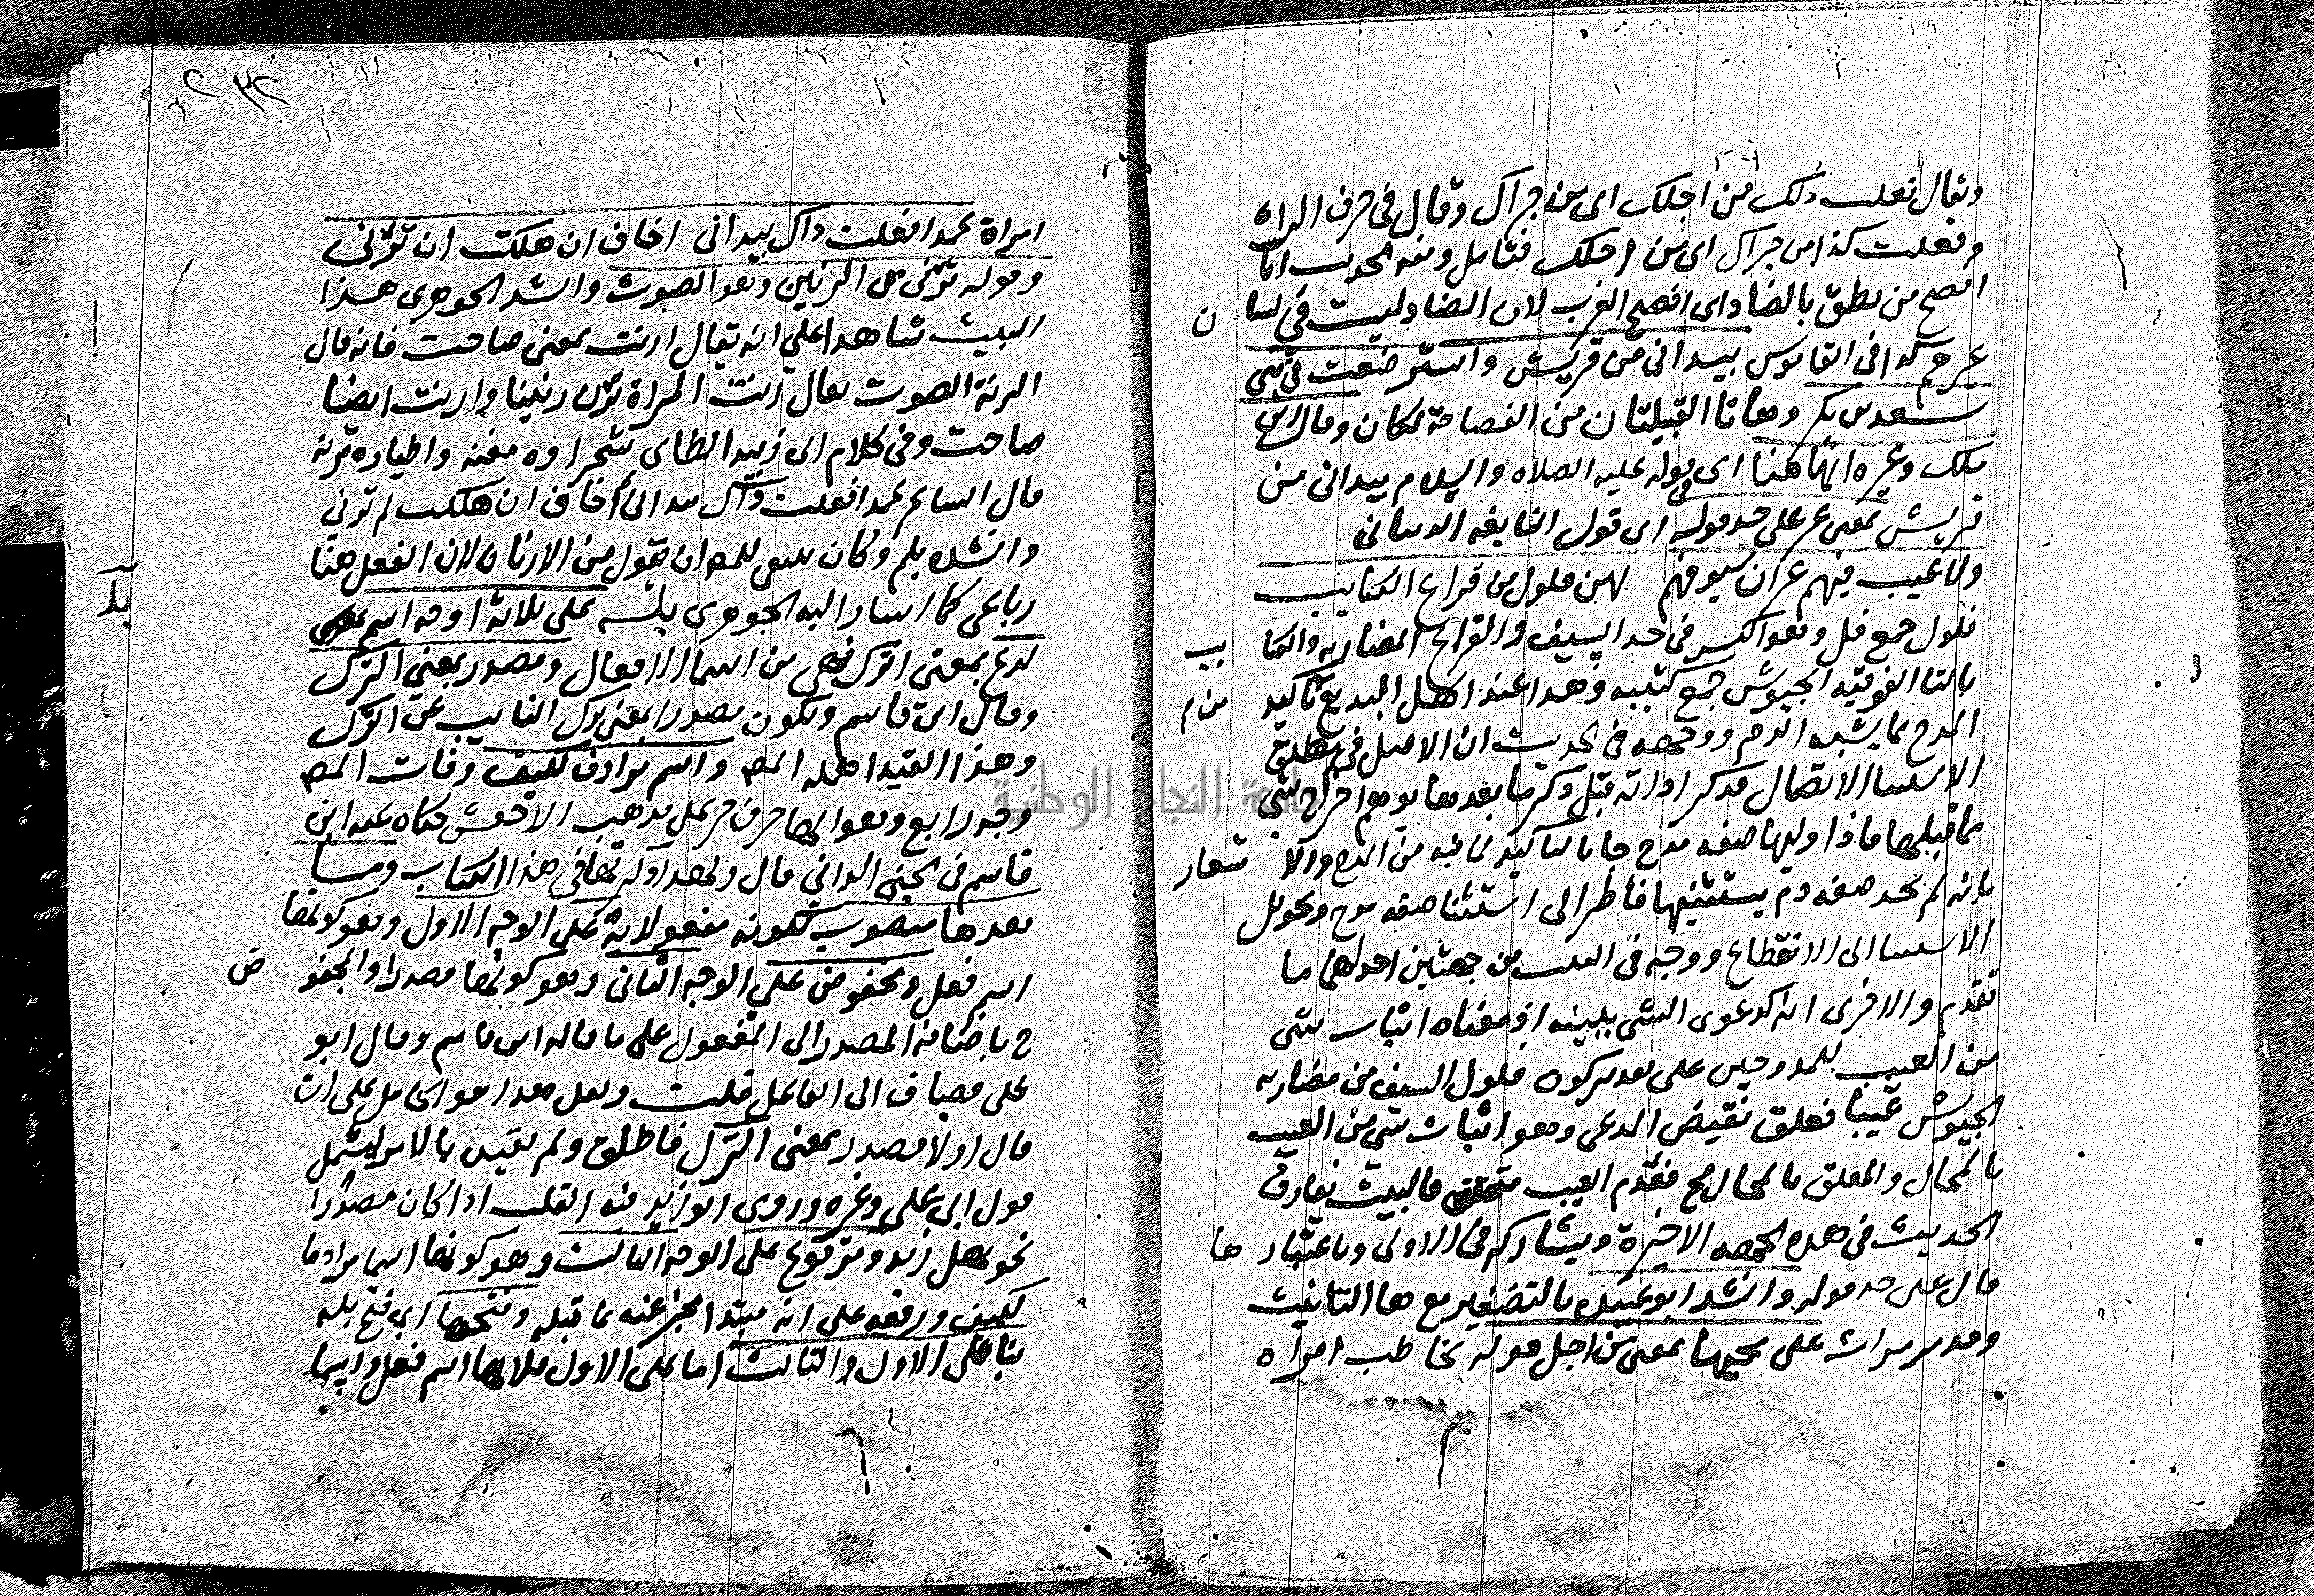 ويقال فعلت ذلك من اجلك اى من جراك وقال فى حرف الراء
وفعلت كذا من جراك اى من اجلك فتامل ومنه الحديث انا
افصح من نطق بالضاد اى افصح العرب لان الضاد ليست فى لسان
غيرهم كذا فى القاموس بيد انى من قريش واسترضعت فى بنى
سعد بن بكر وهاتا القبيلتان من الفصاحة بمكان وقال ابن
ملك وغيره انها هنا اى فى قوله عليه الصلاه والسلام بيد انى من
قريش بمعنى غير على حد قوله اى قول النابغه الدبيانى
ولا عيب فيهم غير ان سيوفهم بهن فلول من قراع الكتايب
فلول جمع فل وهو الكسر فى حد السيف والقراع المضاربه والكتايب
بالتا الفوقيه الجيوش جمع كتيبه وهذا عند اهل البديع تاكيد
المدح بما يشبه الذم ووجهه فى الحديث ان الاصل فى مطلق
الاستثنا الاتصال فذكر اداته قبل ذكر ما بعدها يوهم اخراج شى
مما قبلها فاذا وليها صفه مدح جا بالتاكيد لما فيه من المدح والاشعار
بانه لم يجد صفه ذم يستثنيها فاضطر الى استثنا صفه مدح وتحويل
الاستثنا الى الانقطاع ووجه فى البيت من جهتين احداهما ما
تقدم والاخرى انه كدعوى الشى ببينه اذ معناه اثبات شى
من العيب للممدوحين على تقدير كون فلول السيف من مضاربه
الجيوش عيبا فعلق نقيض المدعى وهو اثبات شى من العيب
بالمحال والمعلق بالمحال مح فعدم العيب متحقق فالبيت يفارق
الحديث فى هذه الجهه الاخيرة ويشاركه فى الاولى وباعتبارها
قال على حد قوله وانشد ابو عبيده بالتصغير مع ها التانيث
وهو من مراث على مجيها بمعنى من اجل قوله يخاطب امراه
امراة عمدا فعلت ذاك بيد انى اخاف ان هلكت ان ترنى
وقوله ترنى من الرنين وهو الصوت وانشد الجوهرى هذا
البيت شاهدا على انه يقال ارنت بمعنى صاحت فانه قال
الرنة الصوت يقال رنت المراة ترن رنينا وارنت ايضا
صاحت وفى كلام ابى زبيد الطاى شجراوه مغنه واطياره مرنه
قال الساعر عمدا فعلت ذاك بيد انى اخاف ان هلكت لم ترنى
وانشده بلم وكان ينبغى للمص ان يقول من الارنان لان الفعل هنا
رباعى كما اشار اليه الجوهرى بله على ثلاثه اوجه اسم
لدع بمعنى اترك فهى من اسما الافعال ومصدر بمعنى الترك
وقال ابن قاسم وتكون مصدرا بمعنى ترك النايب عن اترك
وهذا القيد اهمله المص واسم مرادف لكيف وفات المص
وجه رابع وهو انها حرف جر على مذهب الاخفش حكاه عنه ابن
قاسم فى الجنى الدانى قال ولهذا ذكرتها فى هذا الكتاب وما
بعدها منصوب لكونه مفعولا به على الوجه الاول وهو كونها
اسم فعل ومخفوض على الوجه الثانى وهو كونها مصدرا والمخفوض
ح باضافة المصدر الى المفعول على ما قاله ابن قاسم وقال ابو
على مضاف الى الفاعل قلت ولعل هذا هو الحامل على ان
قال اولا مصدر بمعنى الترك فاطلق ولم يقيد بالامر ليشمل
قول ابى على وغيره وروى ابو زيد فيه القلب اذا كان مصدرا
نحو بهل زيد ومرفوع على الوجه الثالث وهو كونها اسما مرادفا
لكيف ورفعه على انه مبتدا مخبر عنه بما قبله وفتحها اى فتح بله
بنا على الاول والثالث اما على الاول فلانها اسم فعل واسما